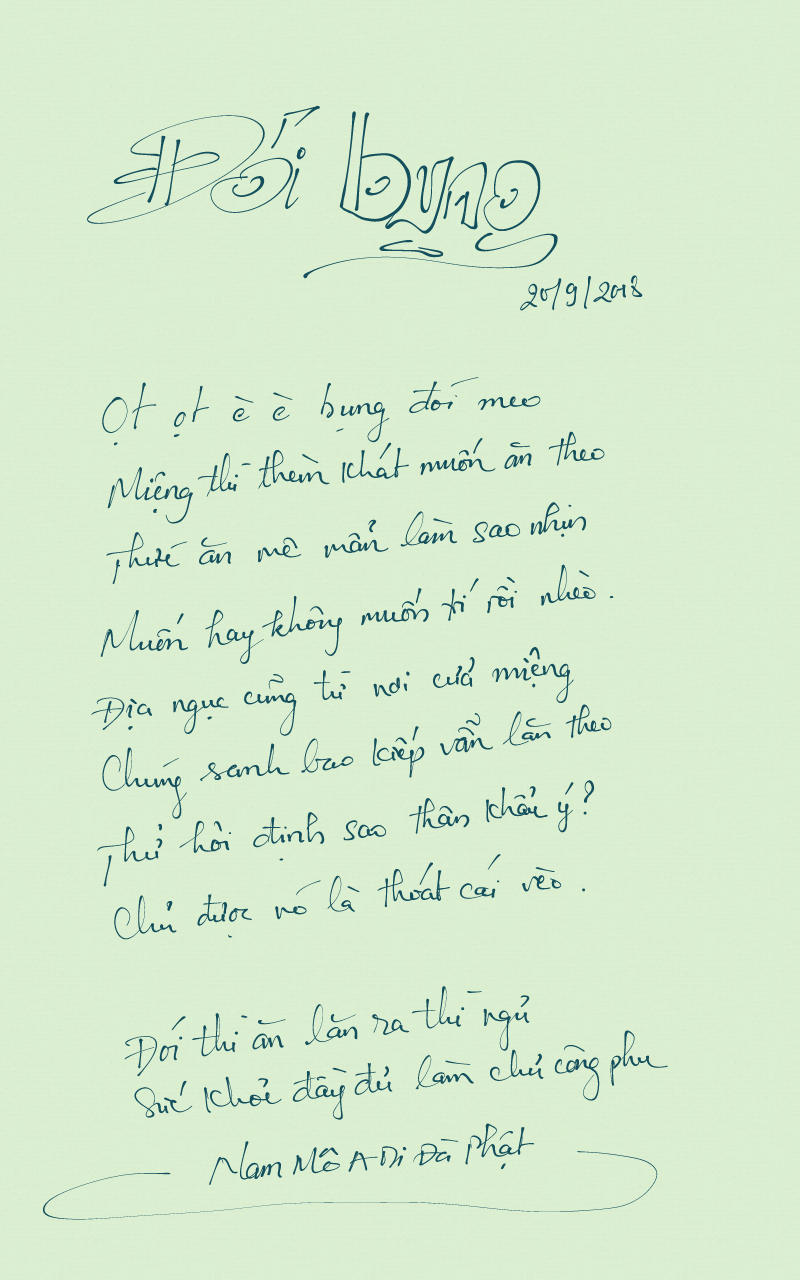 Đói bụng
20/9/2018
Ọt ọt è è bụng đói meo
Miệng thì thèm khát muốn ăn theo
Thức ăn mê mẩn làm sao nhịn
Muốn hay không muốn tí rồi nhèo.
Địa ngục cũng từ nơi cửa miệng
Chúng sanh bao kiếp vẫn lăn theo
Thử hỏi định sao thân khẩu ý?
Chủ được nó là thoát cái vèo.
Đói thì ăn lăn ra thì ngủ
Sức khoẻ đầy đủ làm chủ công phu
Nam Mô A Di Đà Phật